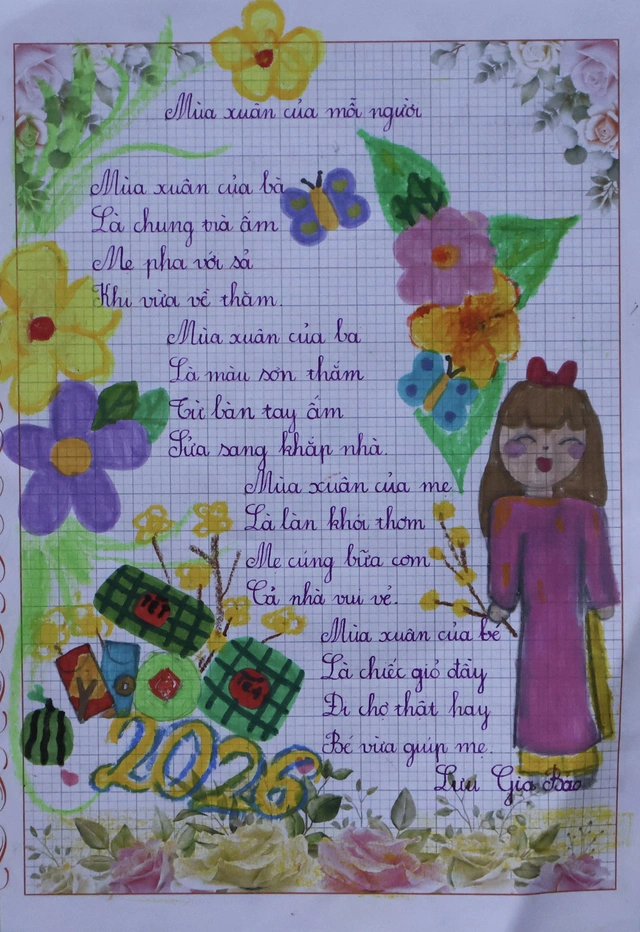 Mùa xuân của mỗi người
Mùa xuân của bà
Là chung trà ấm
Mẹ pha với sả
Khi vừa về thăm.
Mùa xuân của ba
Là màu sơn thắm
Từ bàn tay ấm
Sửa sang khắp nhà.
Mùa xuân của mẹ
Là làn khói thơm
Mẹ cúng bữa cơm
Cả nhà vui vẻ.
Mùa xuân của bé
Là chiếc giỏ đầy
Đi chợ thật hay
Bé vừa giúp mẹ.
Lưu Gia Bảo
TẾT
TẾT
2026